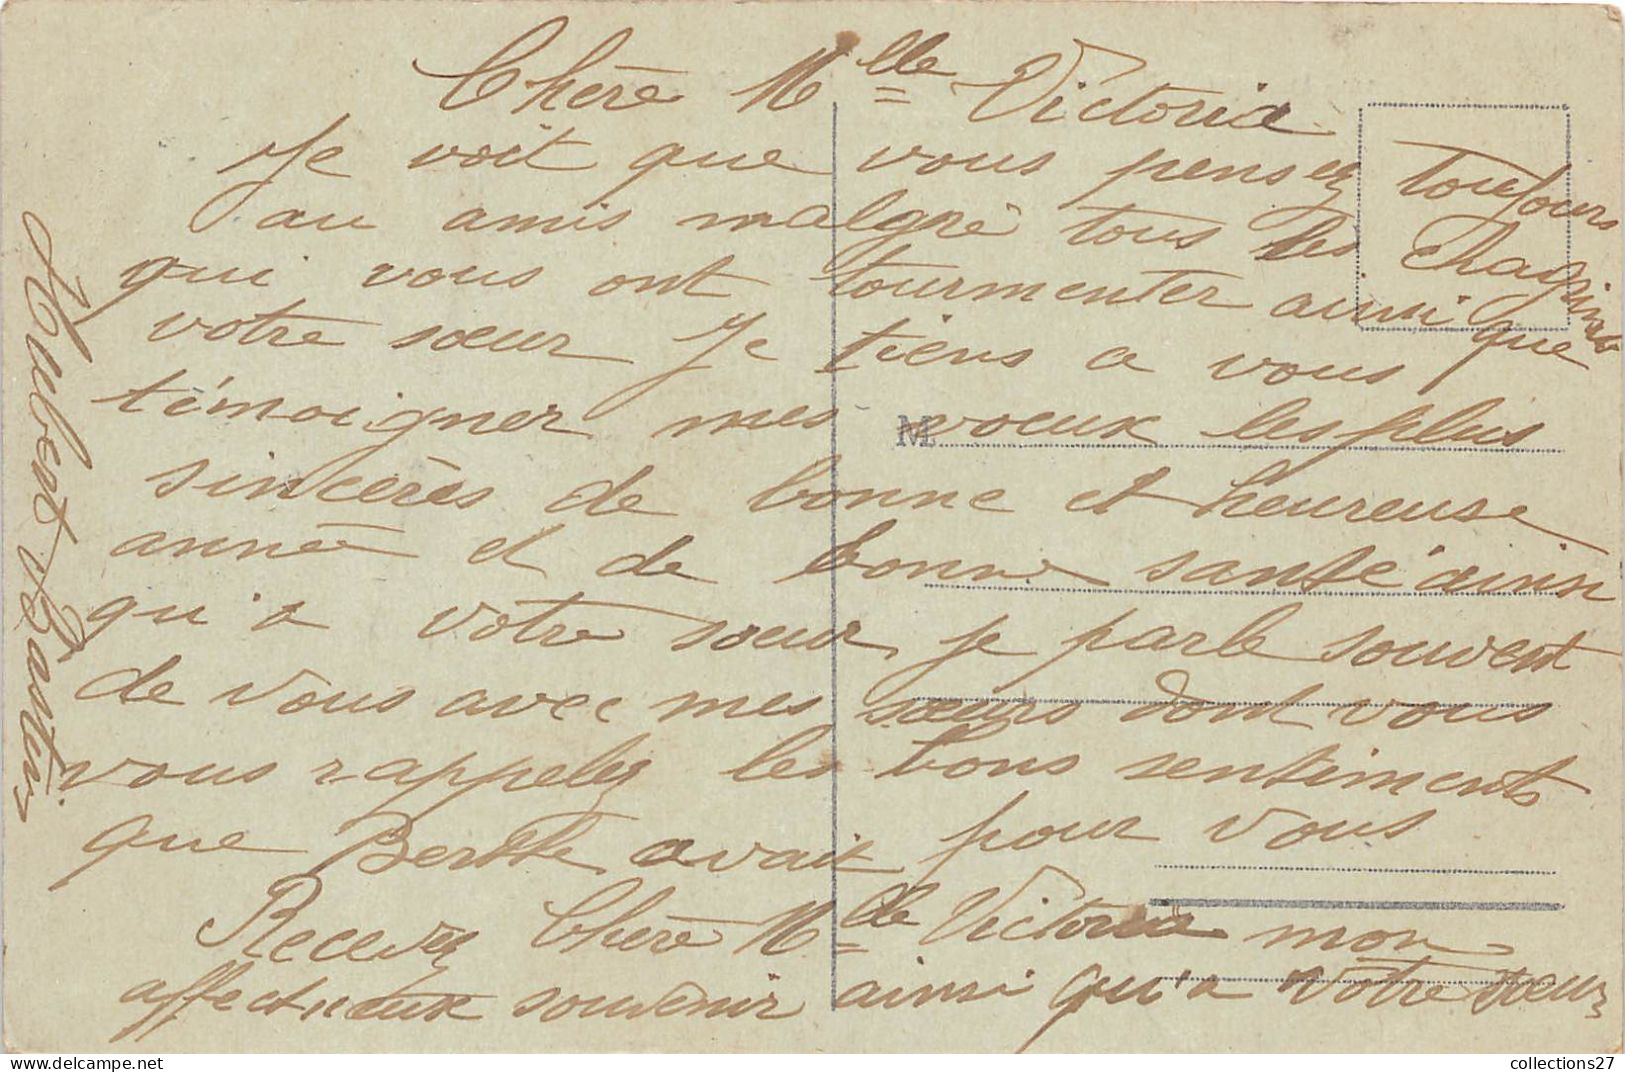 Chère Mlle Victoria
Je voit que vous pensez toujours
au amis malgré tous les chagrins
qui vous ont tourmenter ainsi que
votre sœur Je tiens a vous
témoigner mes voeux les plus
sincères de bonne et heureuse
année et de bonne santé ainsi
qu'a votre sœur, je parle souvent
de vous avec mes sœurs dont vous
vous rappelez les bons sentiments
que Berthe avait pour vous
Recevez Chère Mlle Victoria mon
affectueux souvenir ainsi qu'a votre sœur
Hubert
M
collections27